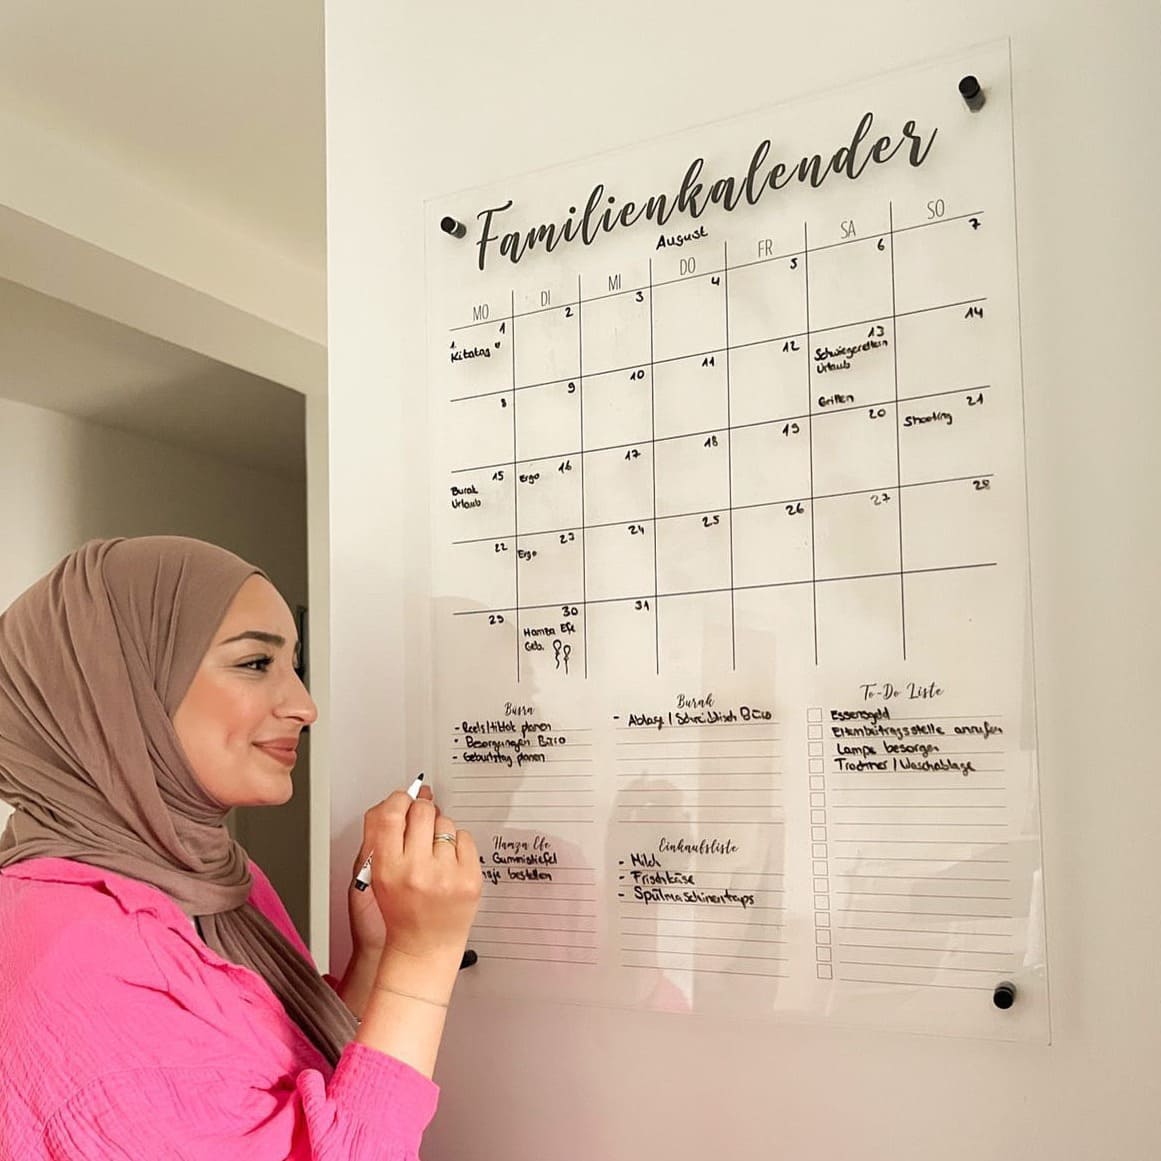 Familienkalender
August
MO DI MI DO FR SA SO
1 2 3 4 5 6 7
1.
Kitatag
8 9 10 11 12 13 14
Schwiegereltern
Urlaub
Grillen
15 16 17 18 19 20 21
Burak
Urlaub
Ergo
Shooting
22 23 24 25 26 27 28
Ergo
29 30 31
Hamza Efe
Geb.
Büsra
- Reels/tiktok planen
- Besorgungen Büro
- Geburtstag planen
Burak
- Ablage / Schreibtisch Büro
To-Do Liste
Essensgeld
Elternbeitragsstelle anrufen
Lampe besorgen
Trockner / Waschablage
Hamza Efe
Gummistiefel
bestellen
Einkaufsliste
- Milch
- Frischkäse
- Spülmaschinentraps